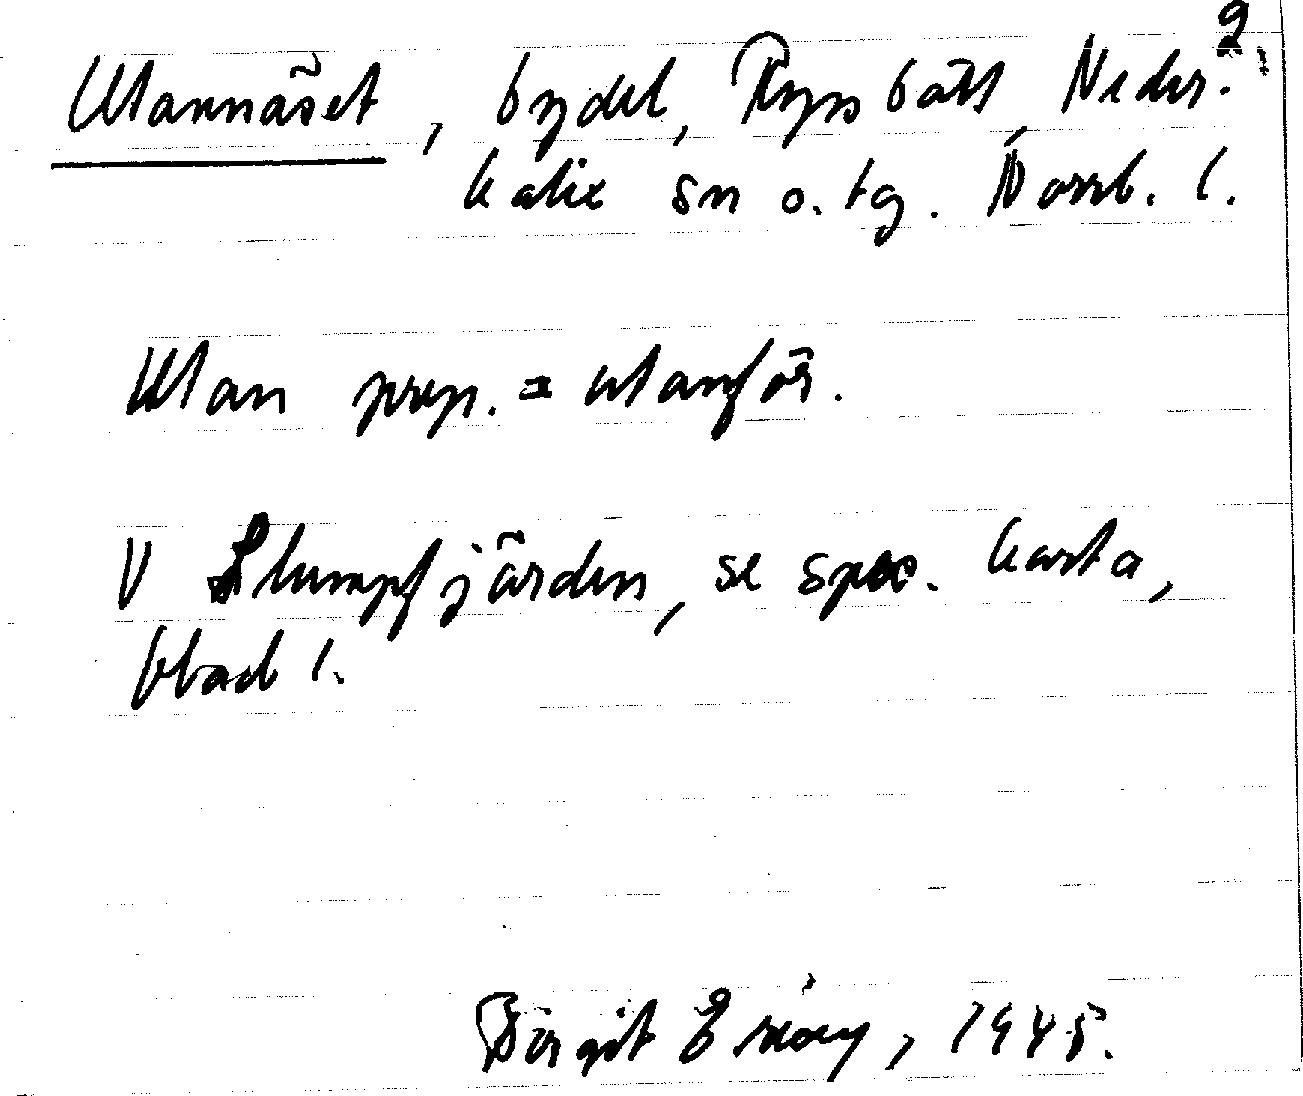 2.
Utannäset, bydel, Ryssbält, Neder-
kalix sn o. tg. Norrb. l.
Utan prep. = utanför.
V Stumpfjärden, se spec. karta,
blad 1.
Birgit 1945.